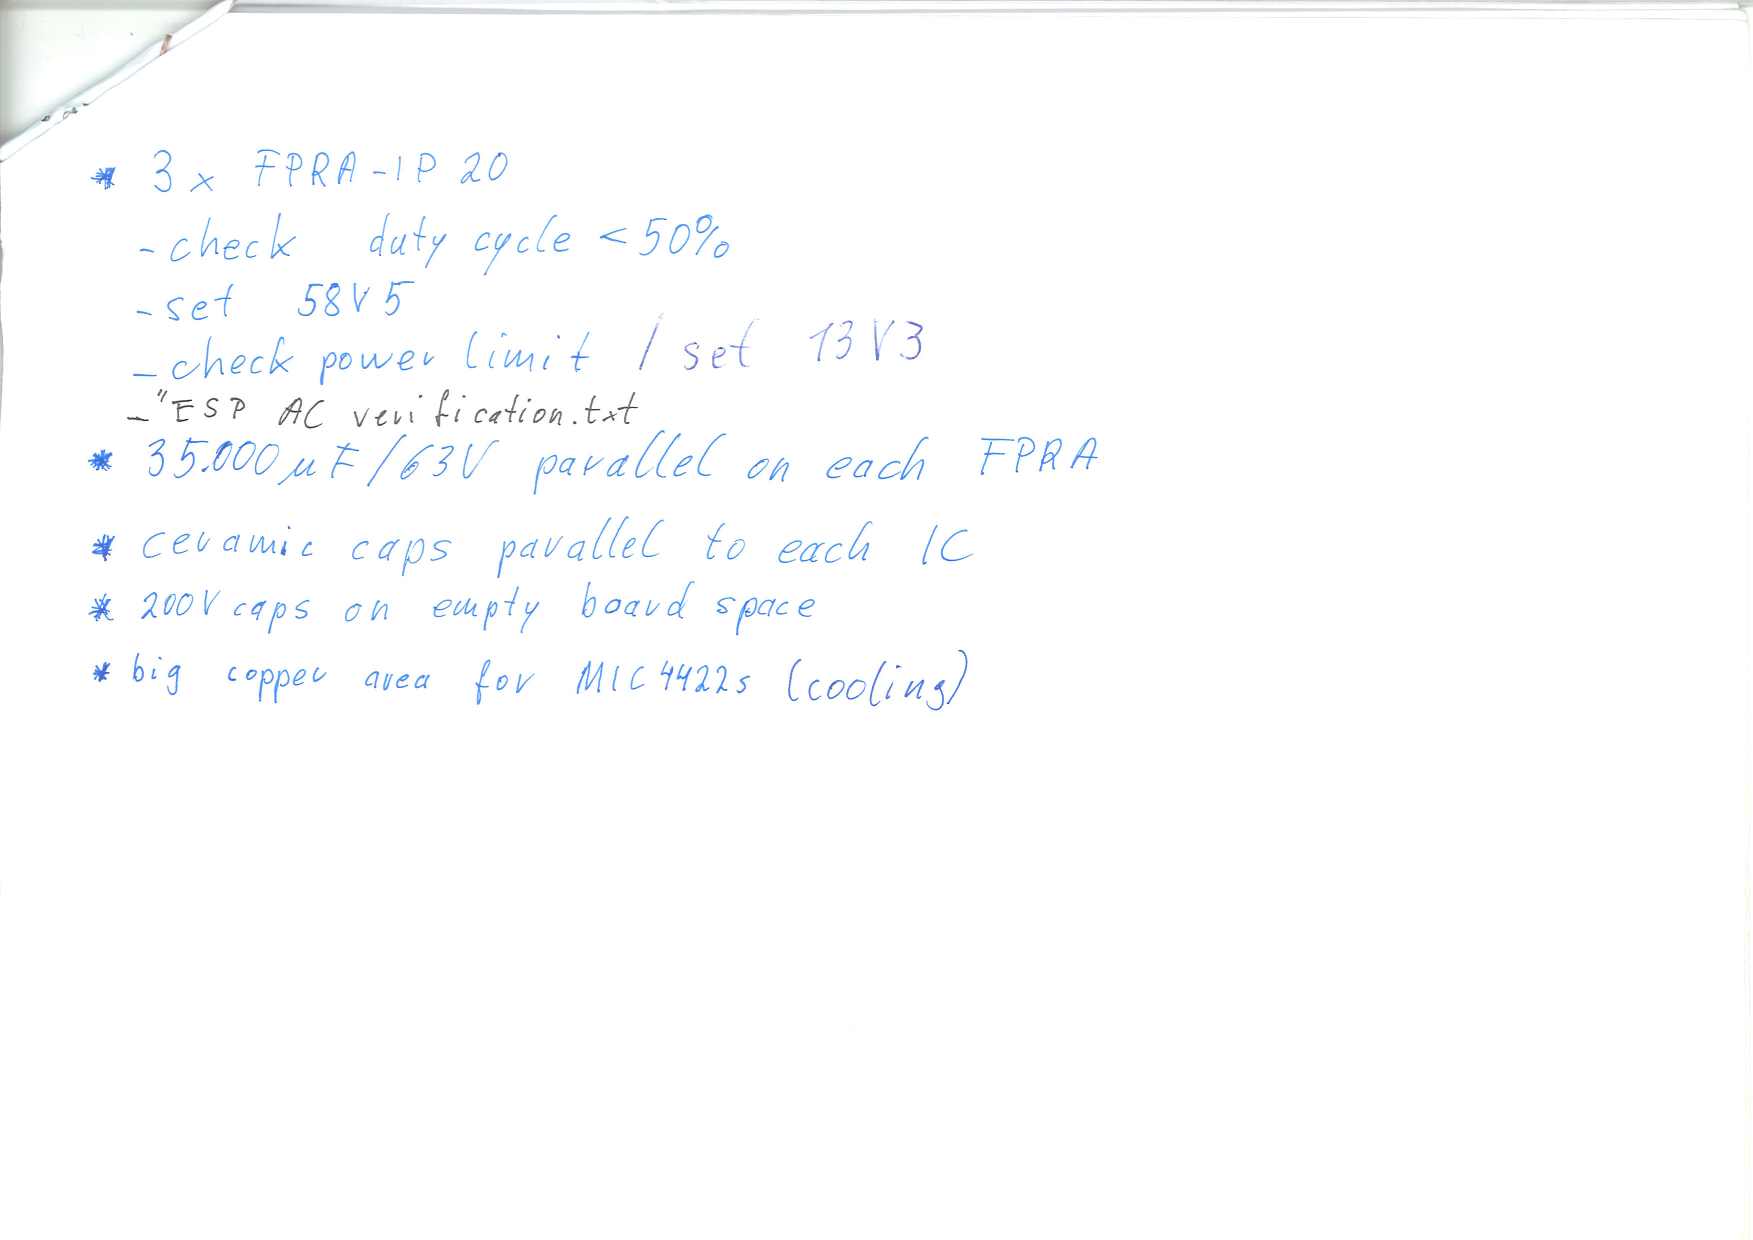 * 3 x FPRA-IP 20
- check duty cycle < 50%
- set 58V5
- check power limit / set 13V3
- "ESP AC verification.txt
* 35.000 µF/63V parallel on each FPRA
* ceramic caps parallel to each IC
* 200V caps on empty board space
* big copper area for MIC4422s (cooling)